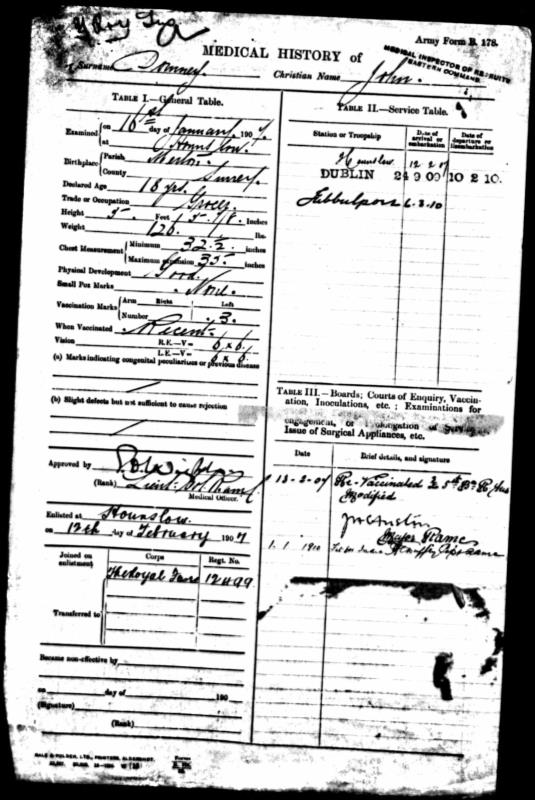 Army Form B. 178.
MEDICAL HISTORY of
MEDICAL INSPECTOR OF RECRUITS
EASTERN COMMAND
Surname Christian Name John.
TABLE I.—General Table.
Examined on 16th day of January 1907.
at Hounslow.
Birthplace Parish
County Surrey.
Declared Age 18 yrs.
Trade or Occupation Grocer
Height 5 Feet Inches
Weight 126 lbs.
Chest Measurement Minimum 32.2 inches
Maximum expansion 35 inches
Physical Development Good.
Small Pox Marks None.
Vaccination Marks Arm Right Left
Number 3.
When Vaccinated Recent.
Vision R.E.—V= 6 x 6.
L.E.—V= 6 x 6.
(a) Marks indicating congenital peculiarities or previous disease
(b) Slight defects but not sufficient to cause rejection
Approved by
(Rank) Lieut:
Medical Officer.
Enlisted at Hounslow.
on 12th day of February 1907
Joined on enlistment Corps Regt. No.
The Royal Fus 12499
Transferred to
Became non-effective by
on day of 190
(Signature)
(Rank)
GALE & POLDEN, LTD., PRINTERS, ALDERSHOT.
TABLE II.—Service Table.
Station or Troopship Date of arrival or embarkation Date of departure or disembarkation
Hounslow 12 2 07
DUBLIN 24 9 09 10 2 10.
Jubbulpore 6.3.10
TABLE III.—Boards; Courts of Enquiry, Vaccination, Inoculations, etc.; Examinations for
engagement, or Prolongation of Service,
Issue of Surgical Appliances, etc.
Date Brief details, and signature
13-2-07 Re-Vaccinated
Modified
Major RAMC
1.1.1910 Fit for India